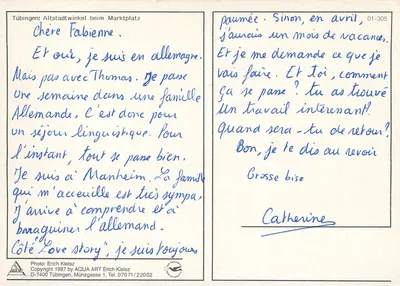 Tübingen: Altstadtwinkel beim Marktplatz
Chère Fabienne.
Et oui, je suis en allemagne.
Mais pas avec Thomas. Je passe
une semaine dans une famille
Allemande. C'est donc pour
un séjour linguistique. Pour
l'instant, tout se passe bien.
Je suis à Manheim. La famille
qui m'accueille est très sympa.
J'arrive à comprendre et à
baraguiner l'allemand.
Côté "Love story", je suis toujours
Photo: Erich Kleisz
Copyright 1987 by AQUA ART Erich Kleisz
D-7400 Tübingen, Münzgasse 1, Tel. 07071/22002
01-305
paumée. Sinon, en avril,
j'aurais un mois de vacances.
Et je me demande ce que je
vais faire. Et toi, comment
ça se passe ? tu as trouvé
un travail intéressant?
quand seras-tu de retour?
Bon, je te dis au revoir
Grosse bise
Catherine